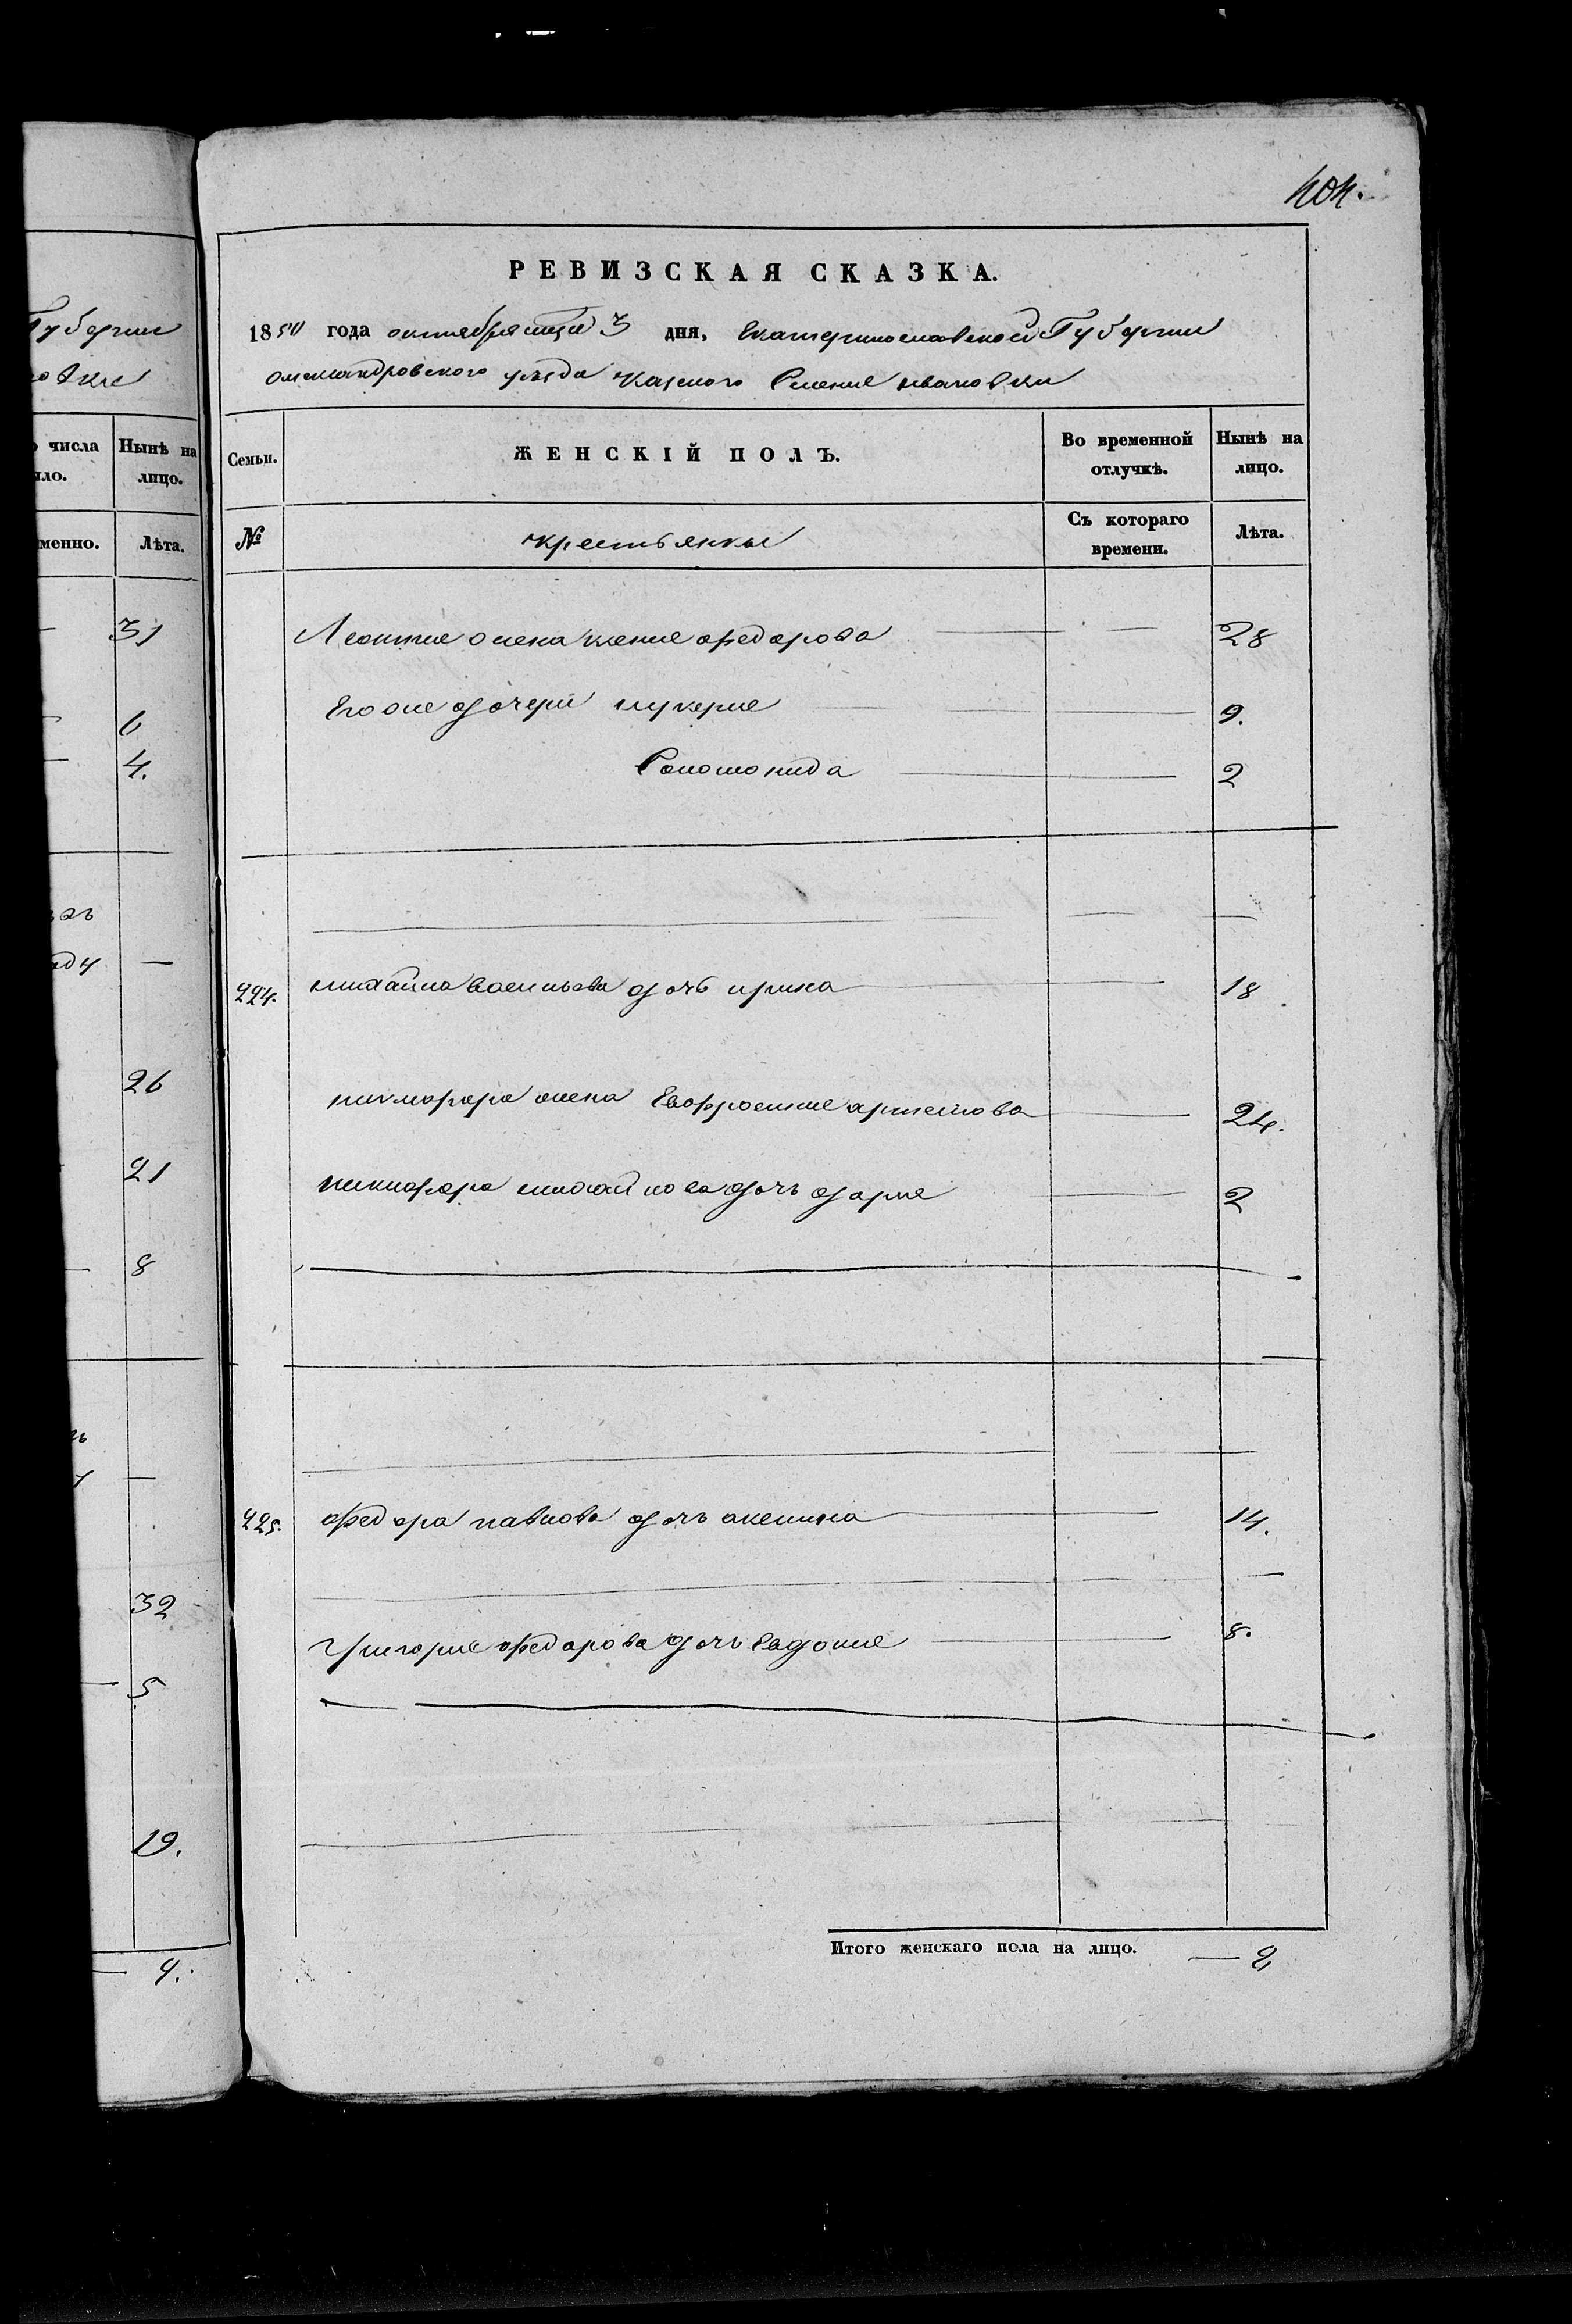 404.
РЕВИЗСКАЯ СКАЗКА.
1850 года октября 3 дня, Екатеринославской Губернии
Александровского уезда Казеного Селения ивановки
Семьи.
ЖЕНСКІЙ ПОЛЪ.
Во временной отлучкѣ.
Нынѣ на лицо.
№
крестьянки
Съ котораго времени.
Лѣта.
Леонтия жена ксения федорова 28
Его же дочери глукерия 9.
Соломонида 2
224. михайла васильева дочь ирина 18
никифора жена Евфросиния архипова 24.
никифора михайлова дочь дария 2
225. федора павлова дочъ аксинна 14.
григория федорова дочъ Евдокия 8.
Итого женскаго пола на лицо. — 8
Губернии
овки
числа
ло.
Нынѣ на
лицо.
менно.
Лѣта.
31
6
4.
—
26
21
8
—
32
5
19.
— 9.